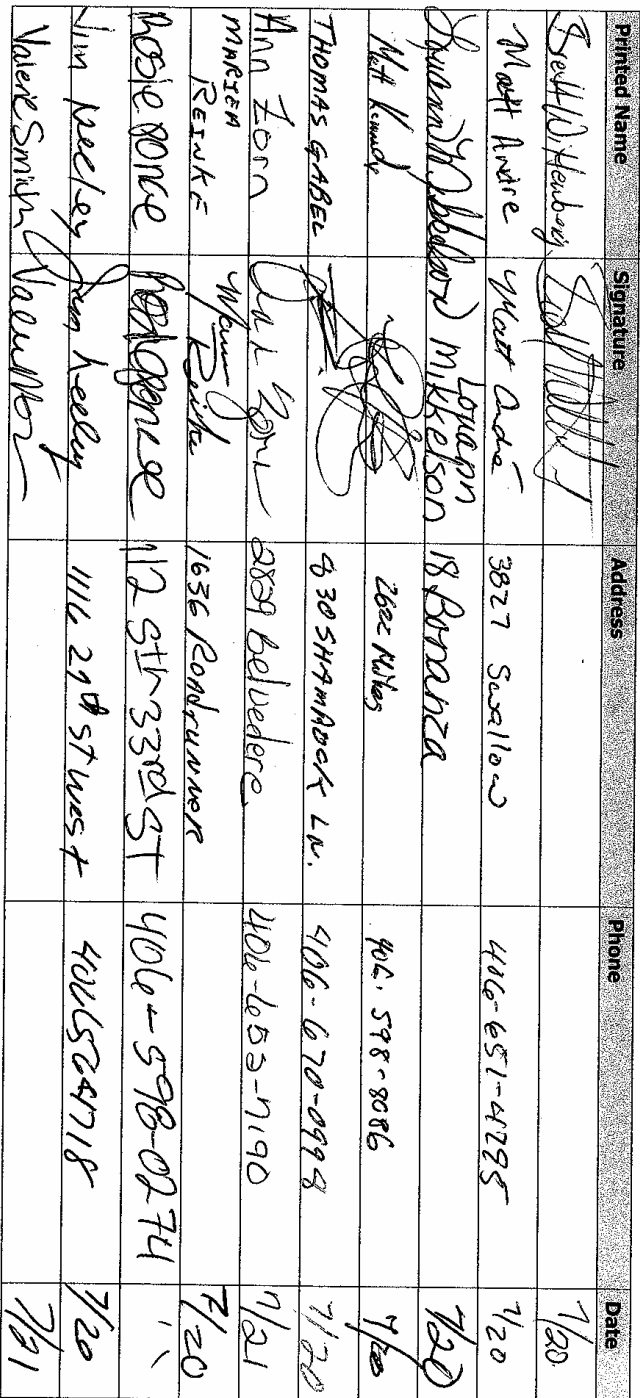 Printed Name Signature Address Phone Date
7/20
Matt Andre Matt Andre 3827 Swallow 406-651-4295 7/20
Lorann Mikkelson 18 Bonanza 7/20
Matt Kennedy 406.598-8086 7/20
THOMAS GABEL 830 SHAMROCK LN. 406-670-0999 7/20
Ann Zorn Ann Zorn 2829 Belvedere 7/21
MARIEA REINKE Reinke 1636 Roadrunner 7/20
Rosie Ronse 112 Sth 33rd St 406-598-0274 "
Jim Keeley Jim Keeley 1116 29th St West 4066569718 7/20
Valerie Smith 7/21